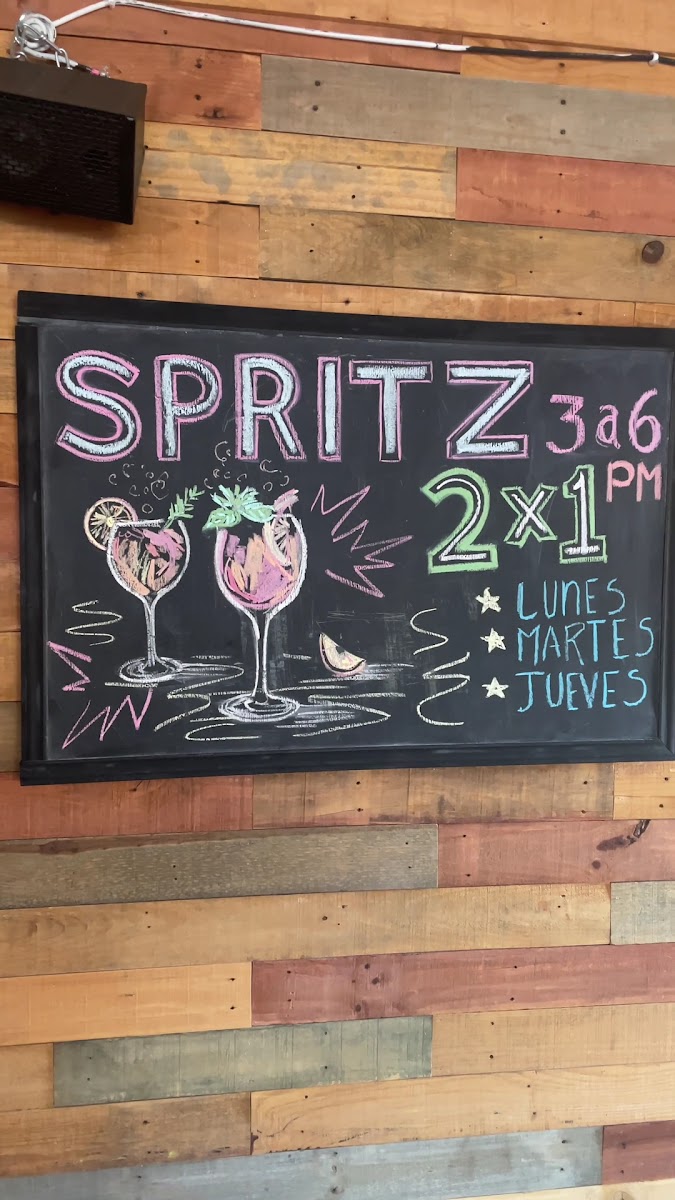 SPRITZ 3 a 6
PM
2x1
LUNES
MARTES
JUEVES